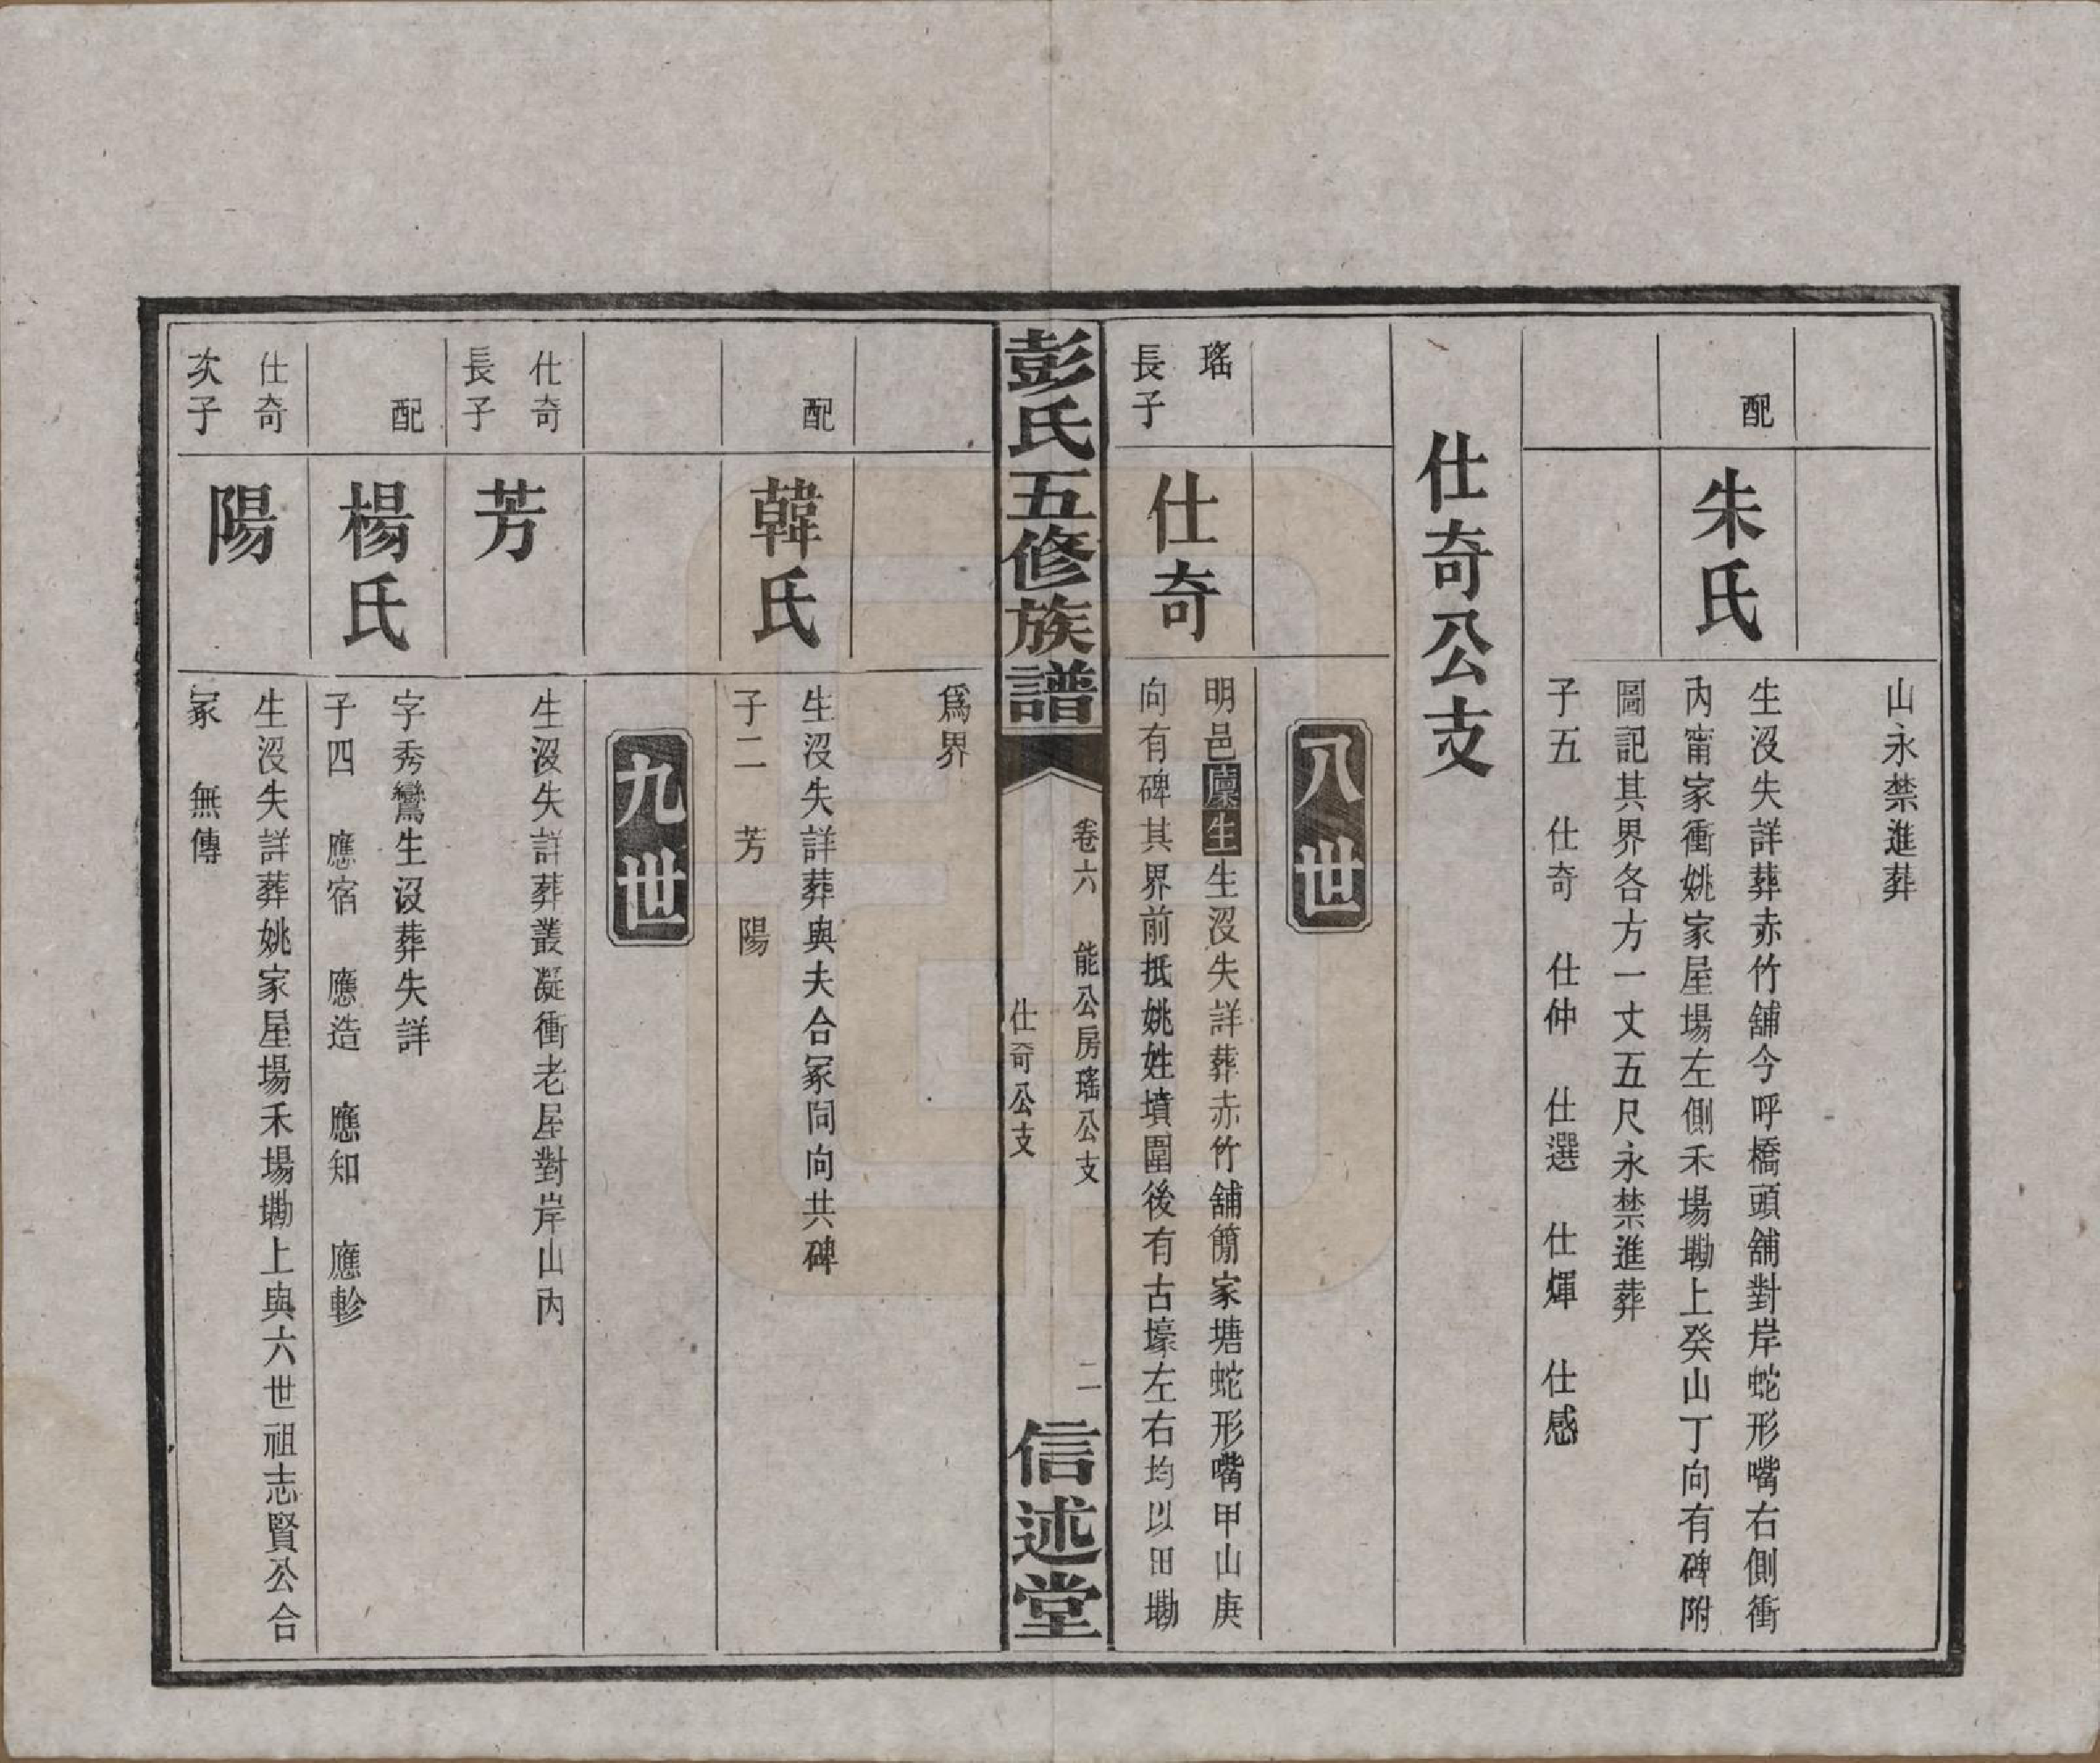 山永禁進葬
配
朱氏
生沒失詳葬赤竹舖今呼橋頭舖對岸蛇形嘴右側衝
內甯家衝姚家屋場左側禾場墈上癸山丁向有碑附
圖記其界各方一丈五尺永禁進葬
子五　仕奇　仕仲　仕選　仕煇　仕感
仕奇公支
八世
瑤
長子
仕奇
明邑廩生生沒失詳葬赤竹舖簡家塘蛇形嘴甲山庚
向有碑其界前抵姚姓墳圍後有古壕左右均以田墈
彭氏五修族譜
卷六　能公房瑤公支
仕奇公支
二
信述堂
爲界
配
韓氏
生沒失詳葬與夫合冢同向共碑
子二　芳　陽
九世
仕奇
長子
芳
生沒失詳葬叢凝衝老屋對岸山內
配
楊氏
字秀鸞生沒葬失詳
子四　應宿　應造　應知　應軫
仕奇
次子
陽
生沒失詳葬姚家屋場禾場墈上與六世祖志賢公合
冢　無傳